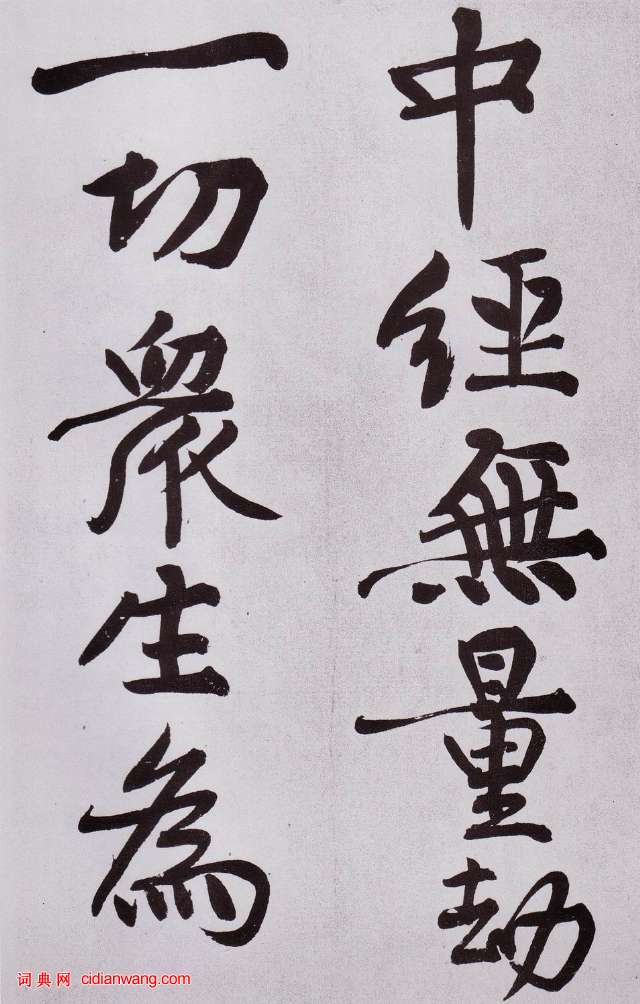 中經無量劫
一切眾生為
词典网 cidianwang.com